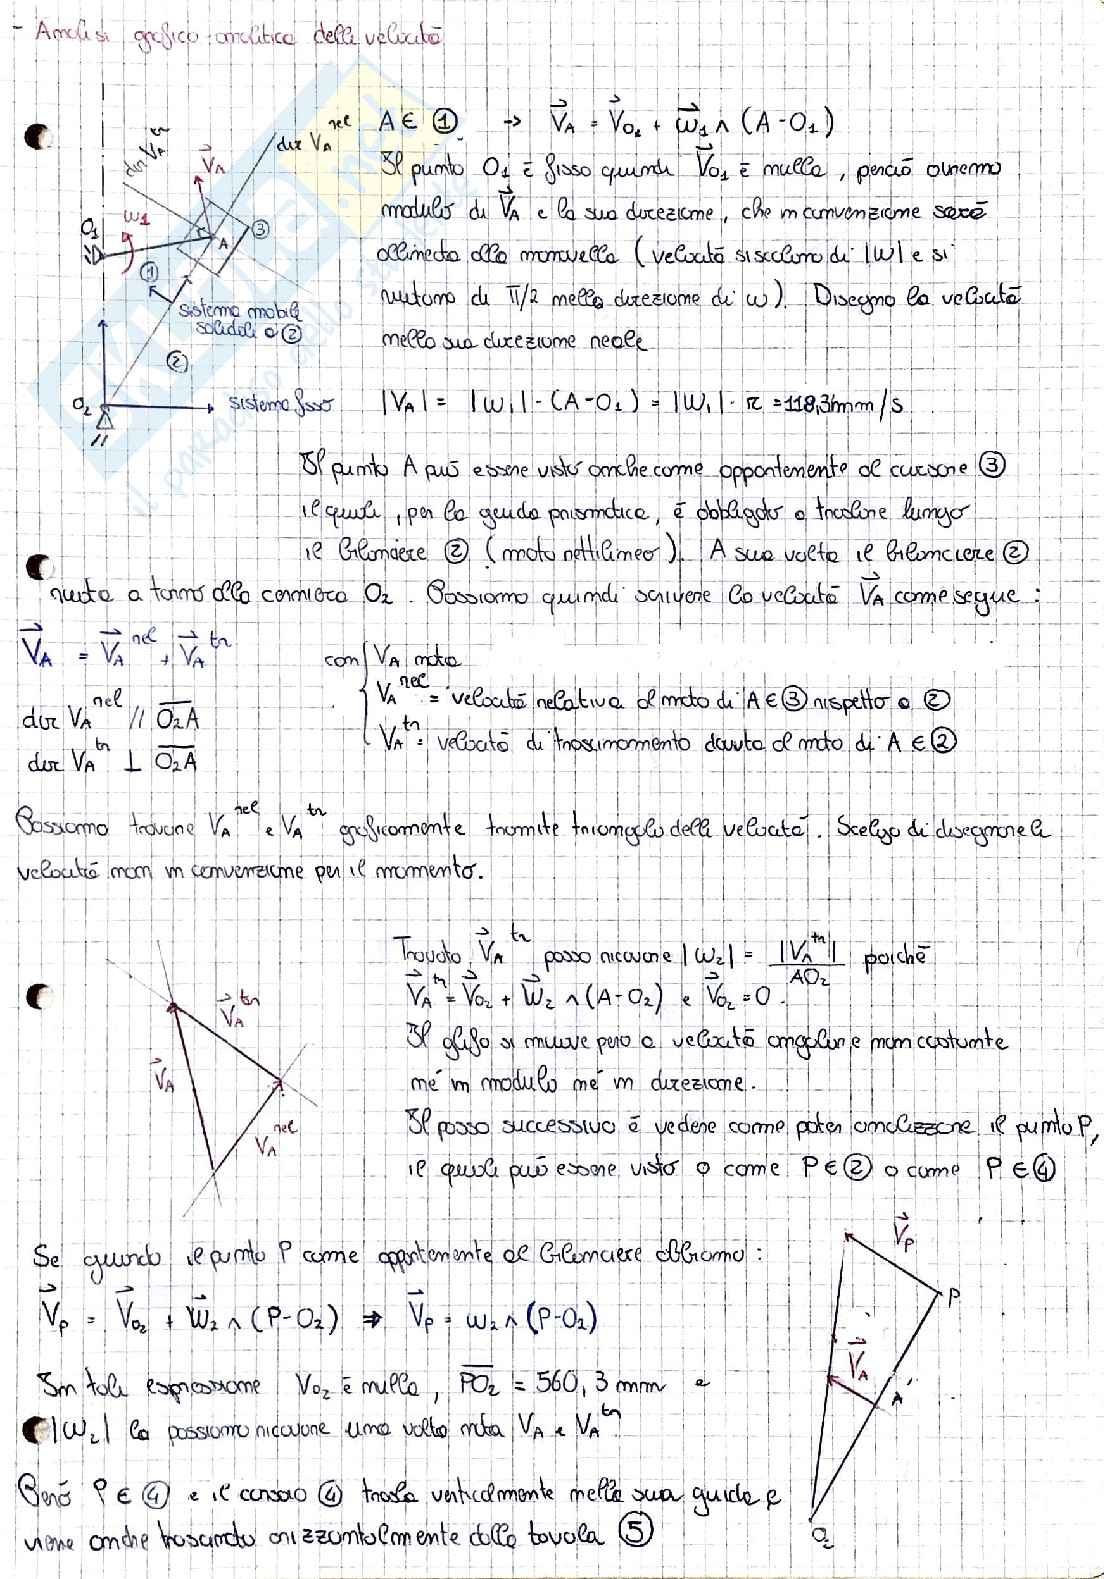 - Analisi grafico-analitica delle velocità
dir V_A^tr
dir V_A^rel
V_A
ω1
O1
A
③
①
sistema mobile
solidale a ②
②
O2
sistema fisso
A ∈ ① → V_A = V_O2 + ω1 ∧ (A - O1)
Il punto O1 è fisso quindi V_O1 è nulla, perciò avremo
modulo di V_A e la sua direzione, che in convenzione sarà
allineata alla manovella (velocità si scalano di |ω| e si
ruotano di π/2 nella direzione di ω). Disegno la velocità
nella sua direzione reale
|V_A| = |ω1| · (A - O1) = |ω1| · r = 118,34mm/s
Il punto A può essere visto anche come appartenente al cursore ③
il quale, per la guida prismatica, è obbligato a traslare lungo
il bilanciere ② (moto rettilineo). A sua volta il bilanciere ②
ruota a torno alla cerniera O2. Possiamo quindi scrivere la velocità V_A come segue:
V_A = V_A^rel + V_A^tr
con { V_A nota
V_A^rel = velocità relativa al moto di A ∈ ③ rispetto a ②
V_A^tr = velocità di trascinamento dovuta al moto di A ∈ ②
dir V_A^rel // O2A
dir V_A^tr ⊥ O2A
Possiamo trovare V_A^rel e V_A^tr graficamente tramite triangolo delle velocità. Scelgo di disegnare le
velocità non in convenzione per il momento.
V_A^tr
V_A
V_A^rel
Trovato V_A^tr posso ricavare |ω2| = |V_A^tr| / AO2 poichè
V_A^tr = V_O2 + ω2 ∧ (A - O2) e V_O2 = 0.
Il glifo si muove però a velocità angolare non costante
né in modulo né in direzione.
Il passo successivo è vedere come poter analizzare il punto P,
il quale può essere visto o come P ∈ ② o come P ∈ ④
Se guardo il punto P come appartenente al bilanciere abbiamo:
V_P = V_O2 + ω2 ∧ (P - O2) ⇒ V_P = ω2 ∧ (P - O2)
In tale espressione V_O2 è nulla, PO2 = 560,3 mm e
|ω2| la possiamo ricavare una volta nota V_A e V_A^tr
Però P ∈ ④ e il corsoio ④ trasla verticalmente nella sua guida e
viene anche trascinato orizzontalmente dalla tavola ⑤
V_P
P
V_A
A
O2